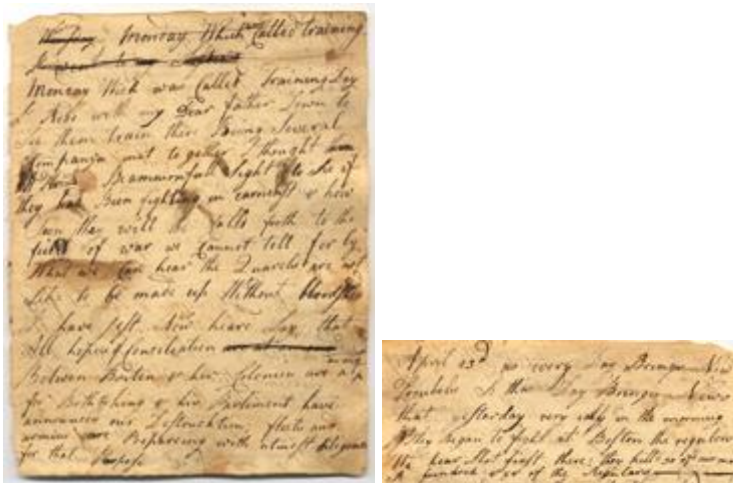 Monday Which was Called training
Monday Wich was Called Training Day
I Rode with my Dear father Down to
See them train there Being Several
Companys met to gether I thought
Beamournfull Sight to See if
they had Been fighting in earnest & how
Soon they will be Calld forth to the
field of war we Cannot tell for by
What we Can hear the Quarels are not
Like to be made up Without bloodshed
I have jest Now heard Say that
All hopes of Conciliation
Betwen Briten & her Colonies are at
for Brittish king & his Parliment have
announced our Destruchtion, fleets and
armies are Prepareing with utmost diligence
for that Purpose
April 23d as every Day Brings New
Troubels So this Day Brings News
that yesterday very early in the morning
They began to fight at Boston the regulers
We hear Shot first there; they kill'd 30 of our
A hundred & 50 of the Regulars